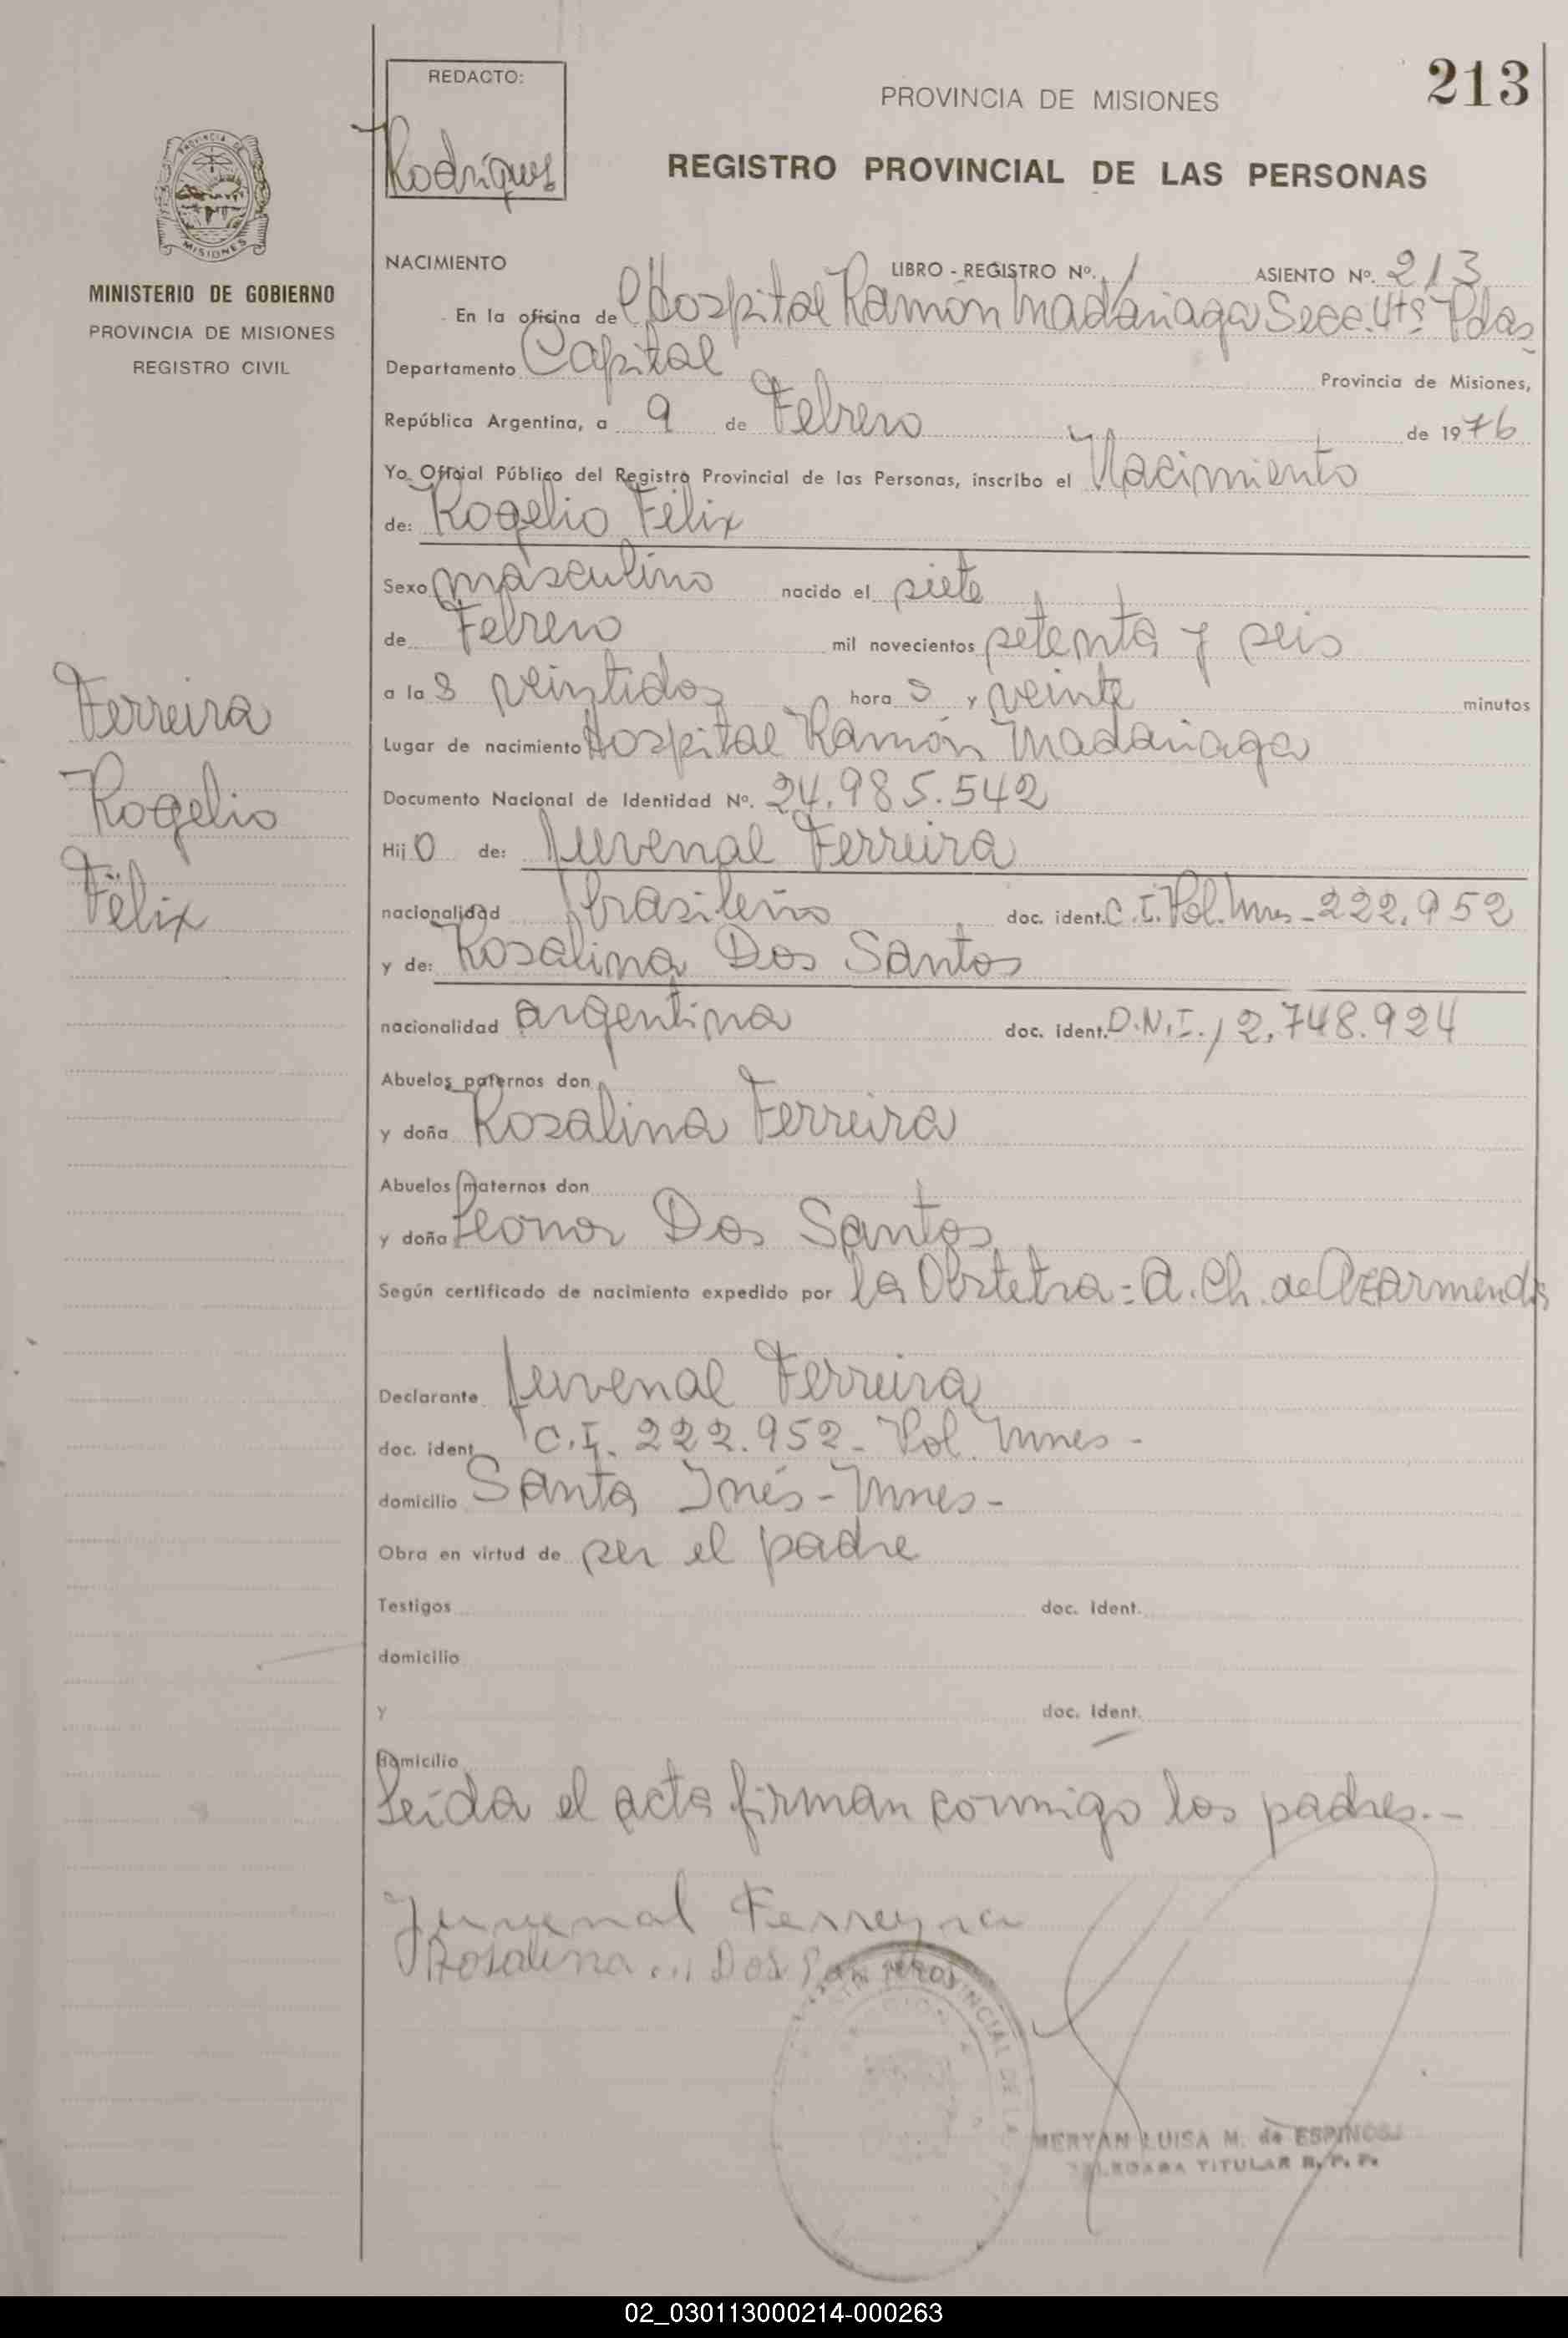 213
REDACTO:
Rodrígues
PROVINCIA DE MISIONES
REGISTRO PROVINCIAL DE LAS PERSONAS
PROVINCIA DE
MISIONES
MINISTERIO DE GOBIERNO
PROVINCIA DE MISIONES
REGISTRO CIVIL
NACIMIENTO LIBRO - REGISTRO Nº. 1 ASIENTO Nº. 213
En la oficina de Hospital Ramón Madariaga Secc. 4ta Pdas
Departamento Capital Provincia de Misiones,
República Argentina, a 9 de Febrero de 1976
Yo Oficial Público del Registro Provincial de las Personas, inscribo el Nacimiento
de: Rogelio Félix
Sexo masculino nacido el siete
de Febrero mil novecientos setenta y seis
a las veintidos horas y veinte minutos
Lugar de nacimiento Hospital Ramón Madariaga
Documento Nacional de Identidad Nº. 24.985.542
Hijo de: Juvenal Ferreira
nacionalidad brasileño doc. ident. C.I. Pol. Mnes - 222.952
y de: Rosalina Dos Santos
nacionalidad argentina doc. ident. D.N.I. 12.748.924
Abuelos paternos don
y doña Rosalina Ferreira
Abuelos maternos don
y doña Leonor Dos Santos
Según certificado de nacimiento expedido por la Obstetra = A. Ch. de
Declarante Juvenal Ferreira
doc. ident C.I. 222.952 - Pol. Mnes -
domicilio Santa Inés - Mnes -
Obra en virtud de ser el padre
Testigos doc. ident.
domicilio
y doc. ident.
Domicilio
Leída el acta firman conmigo los padres.-
Ferreira
Rogelio
Félix
Juvenal Ferreyra
Rosalina ... Dos Santos
PROVINCIAL DE LA
MERYAN LUISA M. de ESPINOSA
DELEGADA TITULAR R. P. P.
02_030113000214-000263